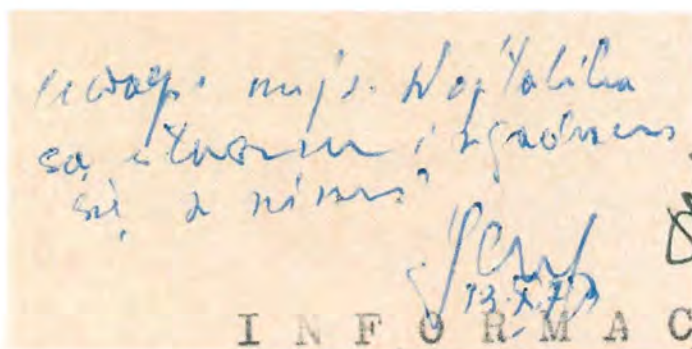 uwagi mjr. Wojtalika
są słuszne i zgadzam
się z nimi
13.X.7
INFORMAC